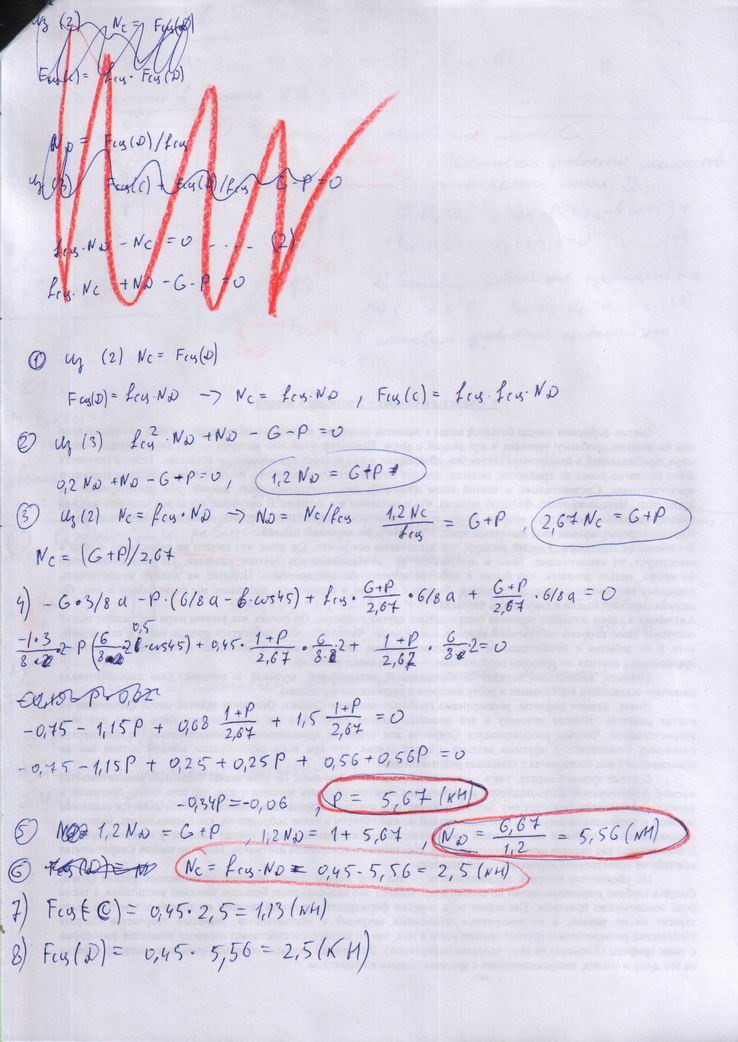 из (2) Nc = Fсц(D)
Fсц(c) = fсц · Fсц(D)
ND = Fсц(D)/fсц
из (3) Fсц(c) + Fсц(D)/fсц - G - P = 0
fсц·ND - Nc = 0 ..... (2)
fсц·Nc + ND - G - P = 0
① из (2) Nc = Fсц(D)
Fсц(D) = fсц·ND → Nc = fсц·ND , Fсц(c) = fсц·fсц·ND
② из (3) fсц²·ND + ND - G - P = 0
0,2 ND + ND - G + P = 0, 1,2 ND = G+P
③ из(2) Nc = fсц·ND → ND = Nc/fсц 1,2 Nc/fсц = G+P , 2,67 Nc = G+P
Nc = (G+P)/2,67
4) -G·3/8 a - P·(6/8a - b·cos45) + fсц · G+P/2,67 · 6/8 a + G+P/2,67 · 6/8 a = 0
-1·3/8·2 - P (6/8·2 - 0,5·cos45) + 0,45· 1+P/2,67 · 6/8·2 + 1+P/2,67 · 6/8·2 = 0
-0,75 - 1,15P + 0,68 1+P/2,67 + 1,5 1+P/2,67 = 0
-0,75 - 1,15P + 0,25 + 0,25P + 0,56 + 0,56P = 0
-0,34P = -0,06 , P = 5,67 (кН)
⑤ 1,2 ND = G+P , 1,2 ND = 1 + 5,67 , ND = 6,67/1,2 = 5,56 (кН)
⑥ Nc = fсц·ND = 0,45·5,56 = 2,5 (кН)
7) Fсц(C) = 0,45·2,5 = 1,13 (кН)
8) Fсц(D) = 0,45·5,56 = 2,5 (КН)